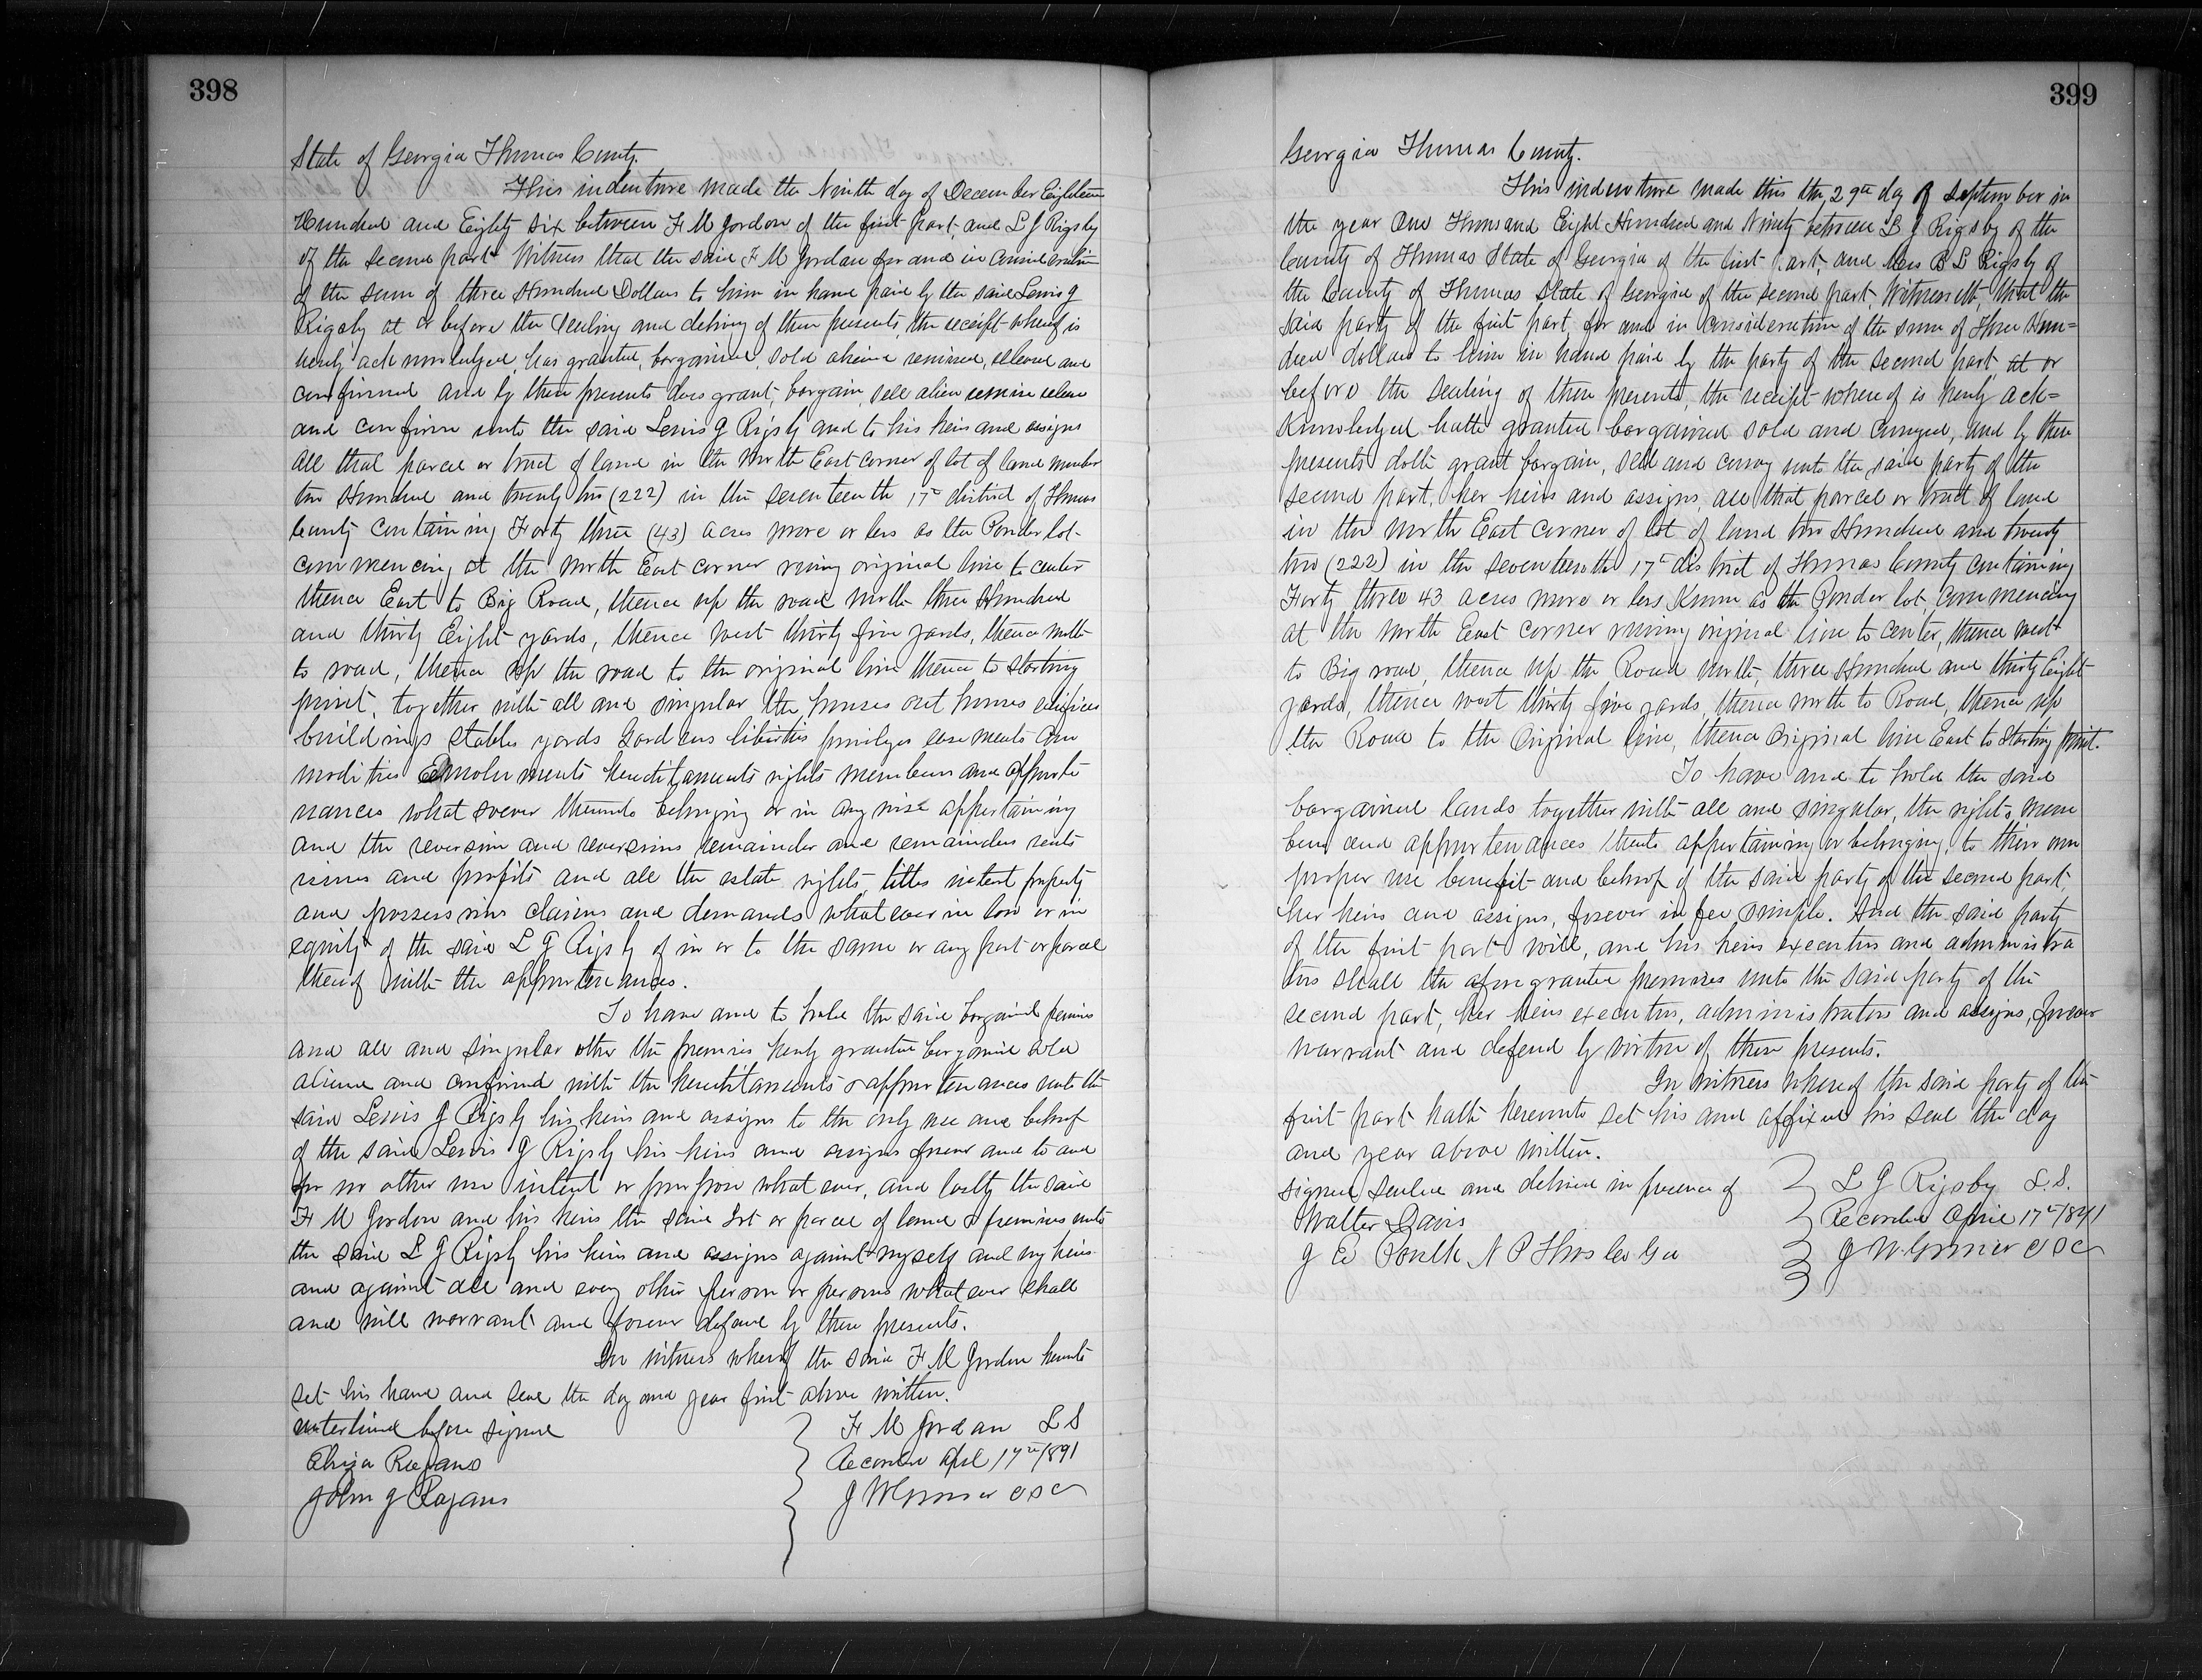 398
State of Georgia Thomas County.
This indenture made the Ninth day of December Eighteen
Hundred and Eighty Six between F M Jordon of the first part, and L G Rigsby
of the second part Witness that the said F M Jordan for and in Consideration
of the sum of three Hundred Dollars to him in hand paid by the said Lewis G
Rigsby at or before the sealing and delivry of these presents, the receipt whereof is
herby acknowledged, has granted, bargained, sold aliened remised, released and
confirmed and by these presents does grant, bargain, sell alien remise release
and confirm unto the said Lewis G Rigsby and to his heirs and assigns
all that parcel or tract of land in the North East corner of lot of land number
two Hundred and twenty two (222) in the Seventeenth 17th district of Thomas
County containing Forty three (43) acres more or less as the Ponder lot-
commencing at the North East corner runing original line to center
thence East to Big Road, thence up the road North three Hundred
and thirty Eight yards, thence west thirty five yards, thence North
to road, thence up the road to the original line thence to starting
point, together with all and singular the houses out houses edifices
buildings stables yards Gardens liberties privileges easements Com
modities Emoluments hereditaments rights members and appurte
nances whatsoever thereunto belonging or in any wise appertaining
and the reversion and reversions remainder and remainders rents
issues and profits and all the estate rights, titles interest property
and possessions claims and demands whatever in law or in
equity of the said L G Rigsby of in or to the same or any part or parcel
thereof with the appurtenances.
To have and to hold the said bargained premises
and all and singular other the premises herby granted bargained sold
aliened and confirmed with the hereditaments & appurtenances unto the
said Lewis G Rigsby his heirs and assigns to the only use and behoof
of the said Lewis G Rigsby his heirs and assigns forever and to and
for no other use intent or purpose what ever, and lastly the said
F M Jordon and his heirs the said lot or parcel of land & premises unto
the said L G Rigsby his heirs and assigns against myself and my heirs
and against all and every other person or persons what ever shall
and will warrant and forever defend by these presents.
In witness whereof the said F M Jordon hereunto
set his hand and seal the day and year first above written.
interlined before signed
F M Jordan L S
Recorded April 17th/1891
John J Ragans
399
Georgia Thomas County.
This indenture made this the 29th day of September in
the year One Thousand Eight Hundred and Ninety between L G Rigsby of the
County of Thomas State of Georgia of the first part, and Mrs B L Rigsby of
the County of Thomas State of Georgia of the second part, Witnesseth, that the
said party of the first part for and in consideration of the sum of Three Hun=
dred dollars to him in hand paid by the party of the second part, at or
before the sealing of these presents, the receipt whereof is herby ack=
knowledged hath granted bargained sold and conveyed, and by these
presents doth grant bargain, sell and convey unto the said party of the
second part, her heirs and assigns, all that parcel or tract of land
in the North East Corner of lot of land two Hundred and twenty
two (222) in the Seventeenth 17th district of Thomas County containing
Forty three 43 acres more or less Known as the Ponder lot, commencing
at the North East corner runing original line to center, thence west
to Big road, thence up the Road North, three Hundred and thirty Eight
yards, thence west thirty five yards, thence north to Road, thence up
the Road to the Original line, thence original line East to Starting point.
To have and to hold the said
bargained lands together with all and singular, the rights, mem
bers and appurtenances thereto appertaining or belonging, to their own
proper use benefit and behoof of the said party of the second part,
her heirs and assigns, forever in fee simple. And the said party
of the first part will, and his heirs executors and administra
tors shall the afore granted premises unto the said party of the
second part, her heirs executors, administrators and assigns, forever
warrant and defend by virtue of these presents.
In witness whereof the said party of the
first part hath hereunto set his and affixed his seal the day
and year above written.
signed sealed and delivered in presence of
L G Rigsby L.S.
Walter Davis
Recorded April 17th/1891